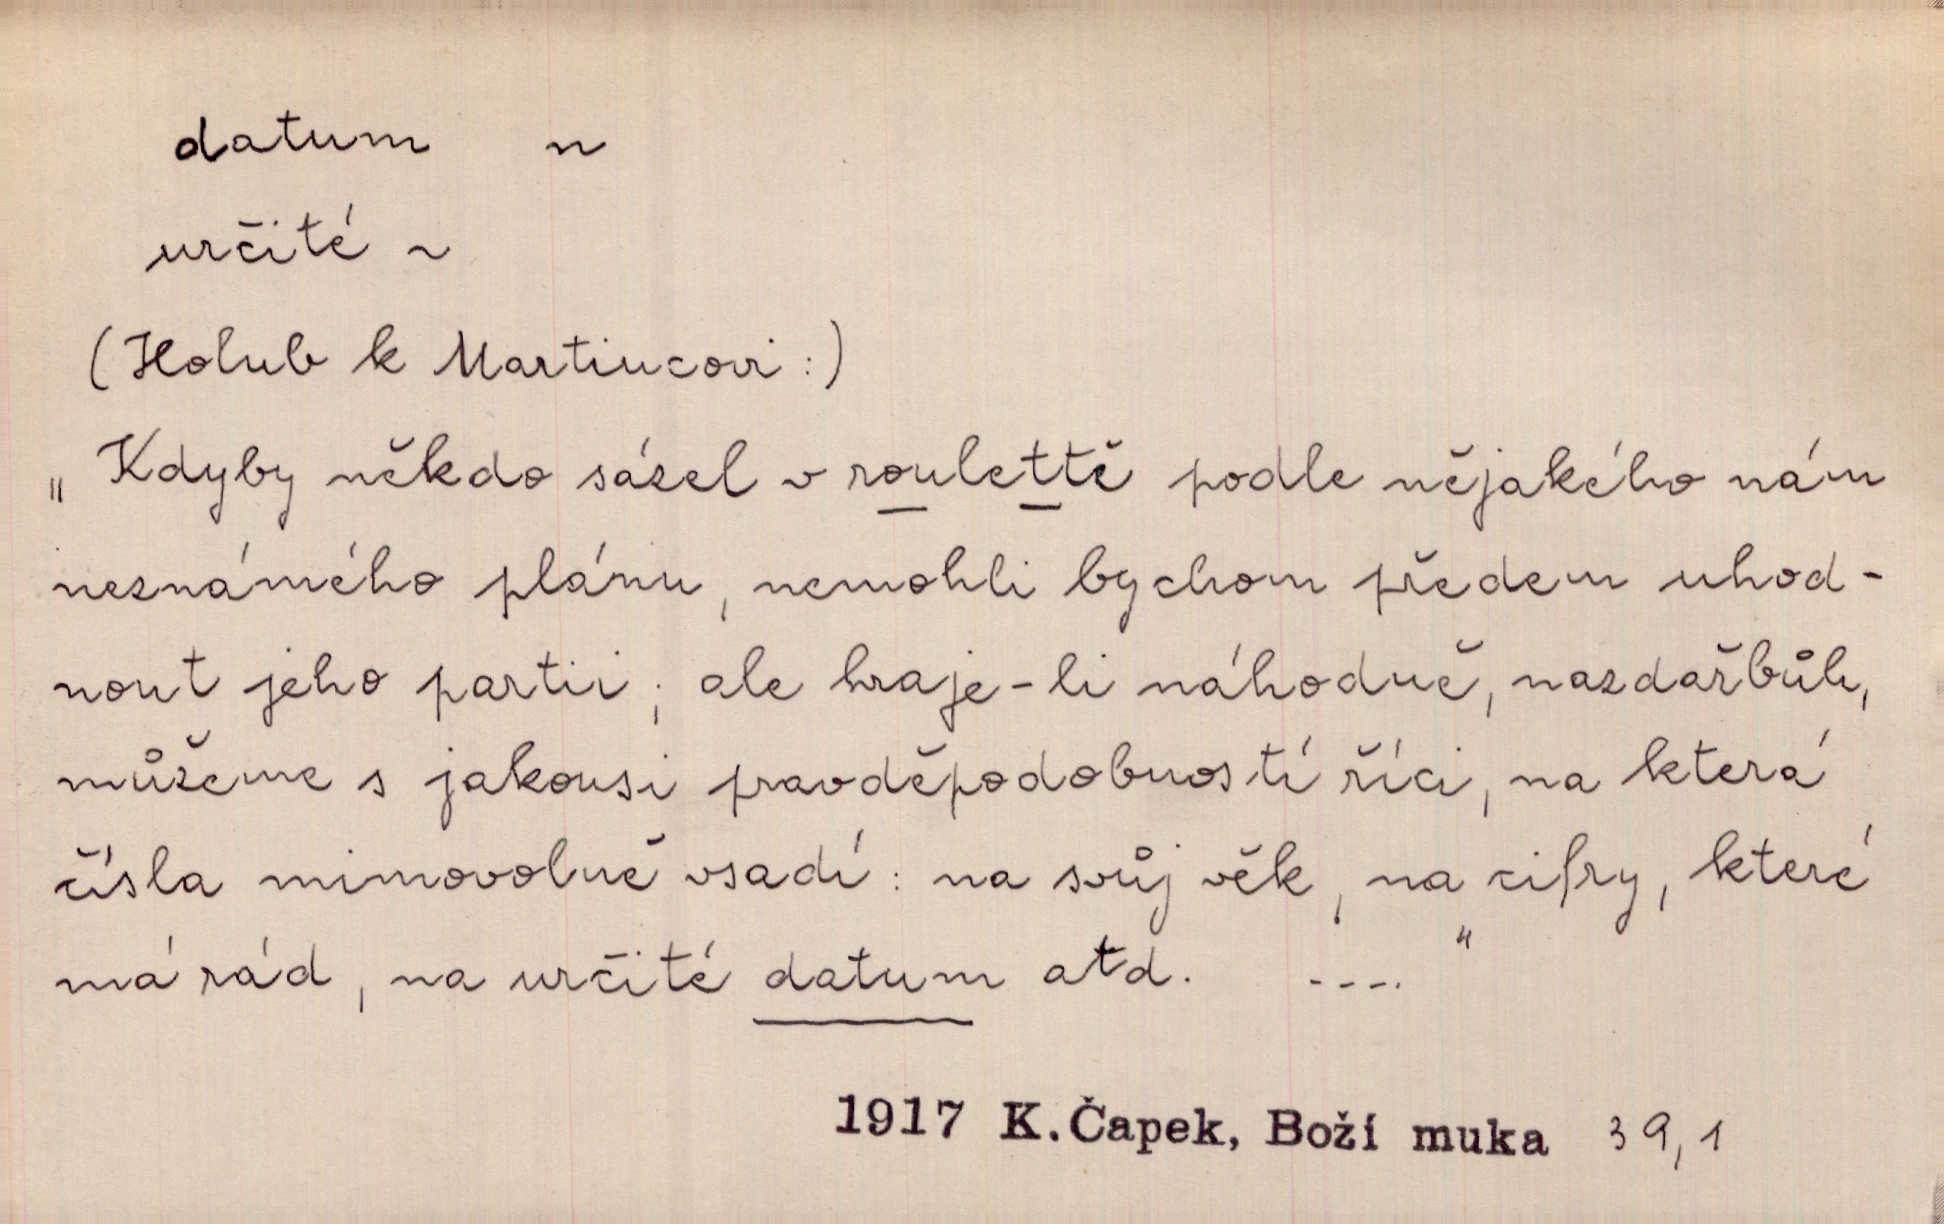 datum n
určité ~
(Holub k Martincovi:)
„Kdyby někdo sázel v roulettě podle nějakého nám
neznámého plánu, nemohli bychom předem uhod-
nout jeho partii; ale hraje-li náhodně, nazdařbůh,
můžeme s jakousi pravděpodobností říci, na která
čísla mimovolně vsadí: na svůj věk, na cifry, které
má rád, na určité datum atd. ...."
1917 K.Čapek, Boží muka 39,1